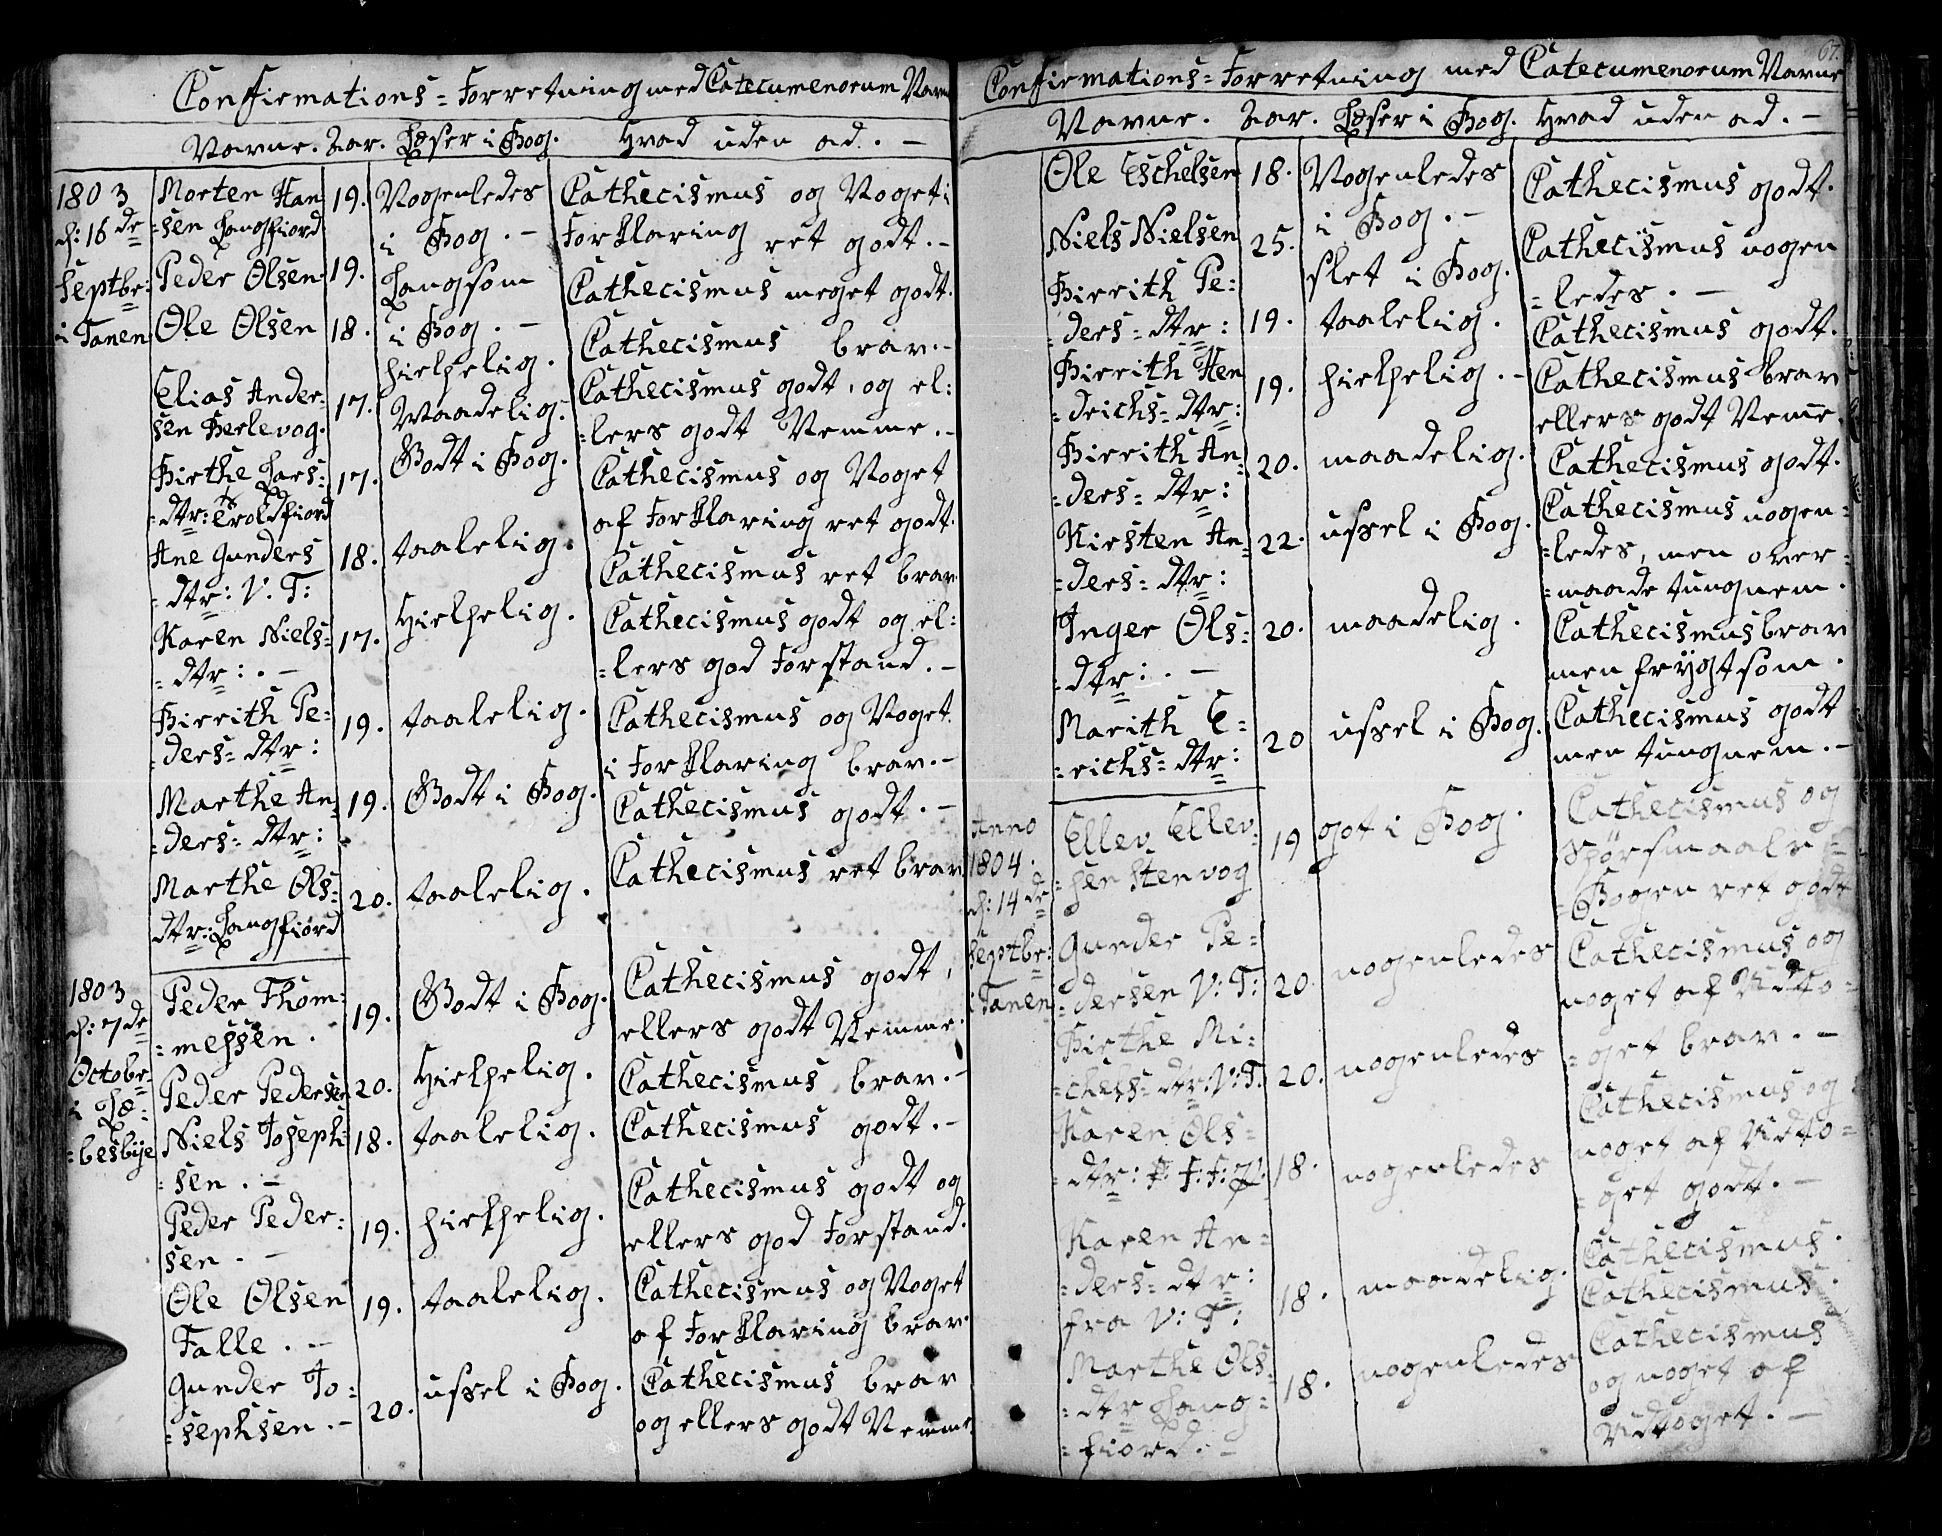 Confirmations-Forretning med Catecumenorum Navne
Navne. Aar. Læser i Bog. Hvad uden ad. -
1803
d: 16de
Septbr:
i Tanen
Morten Han
=sen Langfiord
19.
Nogenledes
i Bog. -
Cathecismus og Noget i
Forklaring ret godt. -
Peder Olsen
19.
Langsom
i Bog. -
Cathecismus meget godt.
Ole Olsen
18.
hielpelig.
Cathecismus brav. -
Elias Ander-
sen Berlevog.
17.
Maadelig.
Cathecismus godt, og el:
=lers godt Nemme. -
Birthe Lars:
=dtr: Troldfiord
17.
Godt i Bog.
Cathecismus og Noget
af Forklaring ret godt.
Ane Gunders
=dtr: V. T:
18.
taalelig.
Cathecismus ret brav
Karen Niels=
=dtr: . -
17.
Hielpelig.
Cathecismus godt og el:
=lers god Forstand. -
Birrith Pe=
=ders=dtr:
19.
taalelig.
Cathecismus og Noget
i Forklaring brav. -
Marthe An
=ders=dtr:
19.
Godt i Bog.
Cathecismus godt. -
Marthe Ols=
dtr: Langfiord
20.
taalelig.
Cathecismus ret brav
1803
d: 7de
Octobr
i Læ=
=besbye
Peder Thom=
=messen.
19.
Godt i Bog.
Cathecismus godt,
ellers godt Nemme.
Peder Pedersen
20.
Hielpelig.
Cathecismus brav. -
Niels Joseph
=sen. -
18.
taalelig.
Cathecismus godt. -
Peder Peder=
sen. -
19.
hielpelig.
Cathecismus godt og
ellers god Forstand.
Ole Olsen
Falle. -
19.
taalelig.
Cathecismus og Noget
af Forklaring brav.
Gunder Jo=
=sephsen. -
20.
ussel i Bog.
Cathecismus brav
og ellers godt Nemme
67.
Confirmations=Forretning med Catecumenorum Navne
Navne. Aar. Læser i Bog. Hvad uden ad. -
Ole Eschelsen
18.
Nogenledes
i Bog. -
Cathecismus godt.
Niels Nielsen
25.
slet i Bog.
Cathecismus nogen
=ledes. -
Birrith Pe=
=ders=dtr:
19.
taalelig.
Cathecismus godt.
Birrith Hen
=drichs=dtr:
19.
hielpelig. -
Cathecismus brav
ellers godt Neme.
Birrith An=
=ders=dtr:
20.
maadelig.
Cathecismus godt.
Kirsten An=
=ders=dtr:
22.
ussel i Bog.
Cathecismus nogen=
=ledes, men over=
=maade tungnem.
Inger Ols=
=dtr: . -
20.
maadelig.
Cathecismus brav
men frygtsom.
Marith E=
=richs=dtr:
20
ussel i Bog.
Cathecismus godt
men tungnem. -
Anno
1804.
d: 14de
Septbr:
i Tanen
Ellev Ellev
=sen Stenvog
19
got i Bog.
Cathecismus og
Spørsmaale i
Bogen ret godt
Gunder Pe=
=dersen V: T:
20.
nogenledes
Cathecismus og
noget af Udto=
=get brav. -
Birthe Mi=
=chels=dtr: V: T.
20.
nogenledes
Cathecismus og
noget af Udto=
=get godt. -
Karen Ols=
=dtr:
18.
nogenledes
Cathecismus.
Karen An=
=ders=dtr:
fra V: T:
18.
maadelig.
Cathecismus.
Marthe Ols
=dtr Lang=
=fiord. -
18.
nogenledes
Cathecismus
og noget af
Udtoget. -